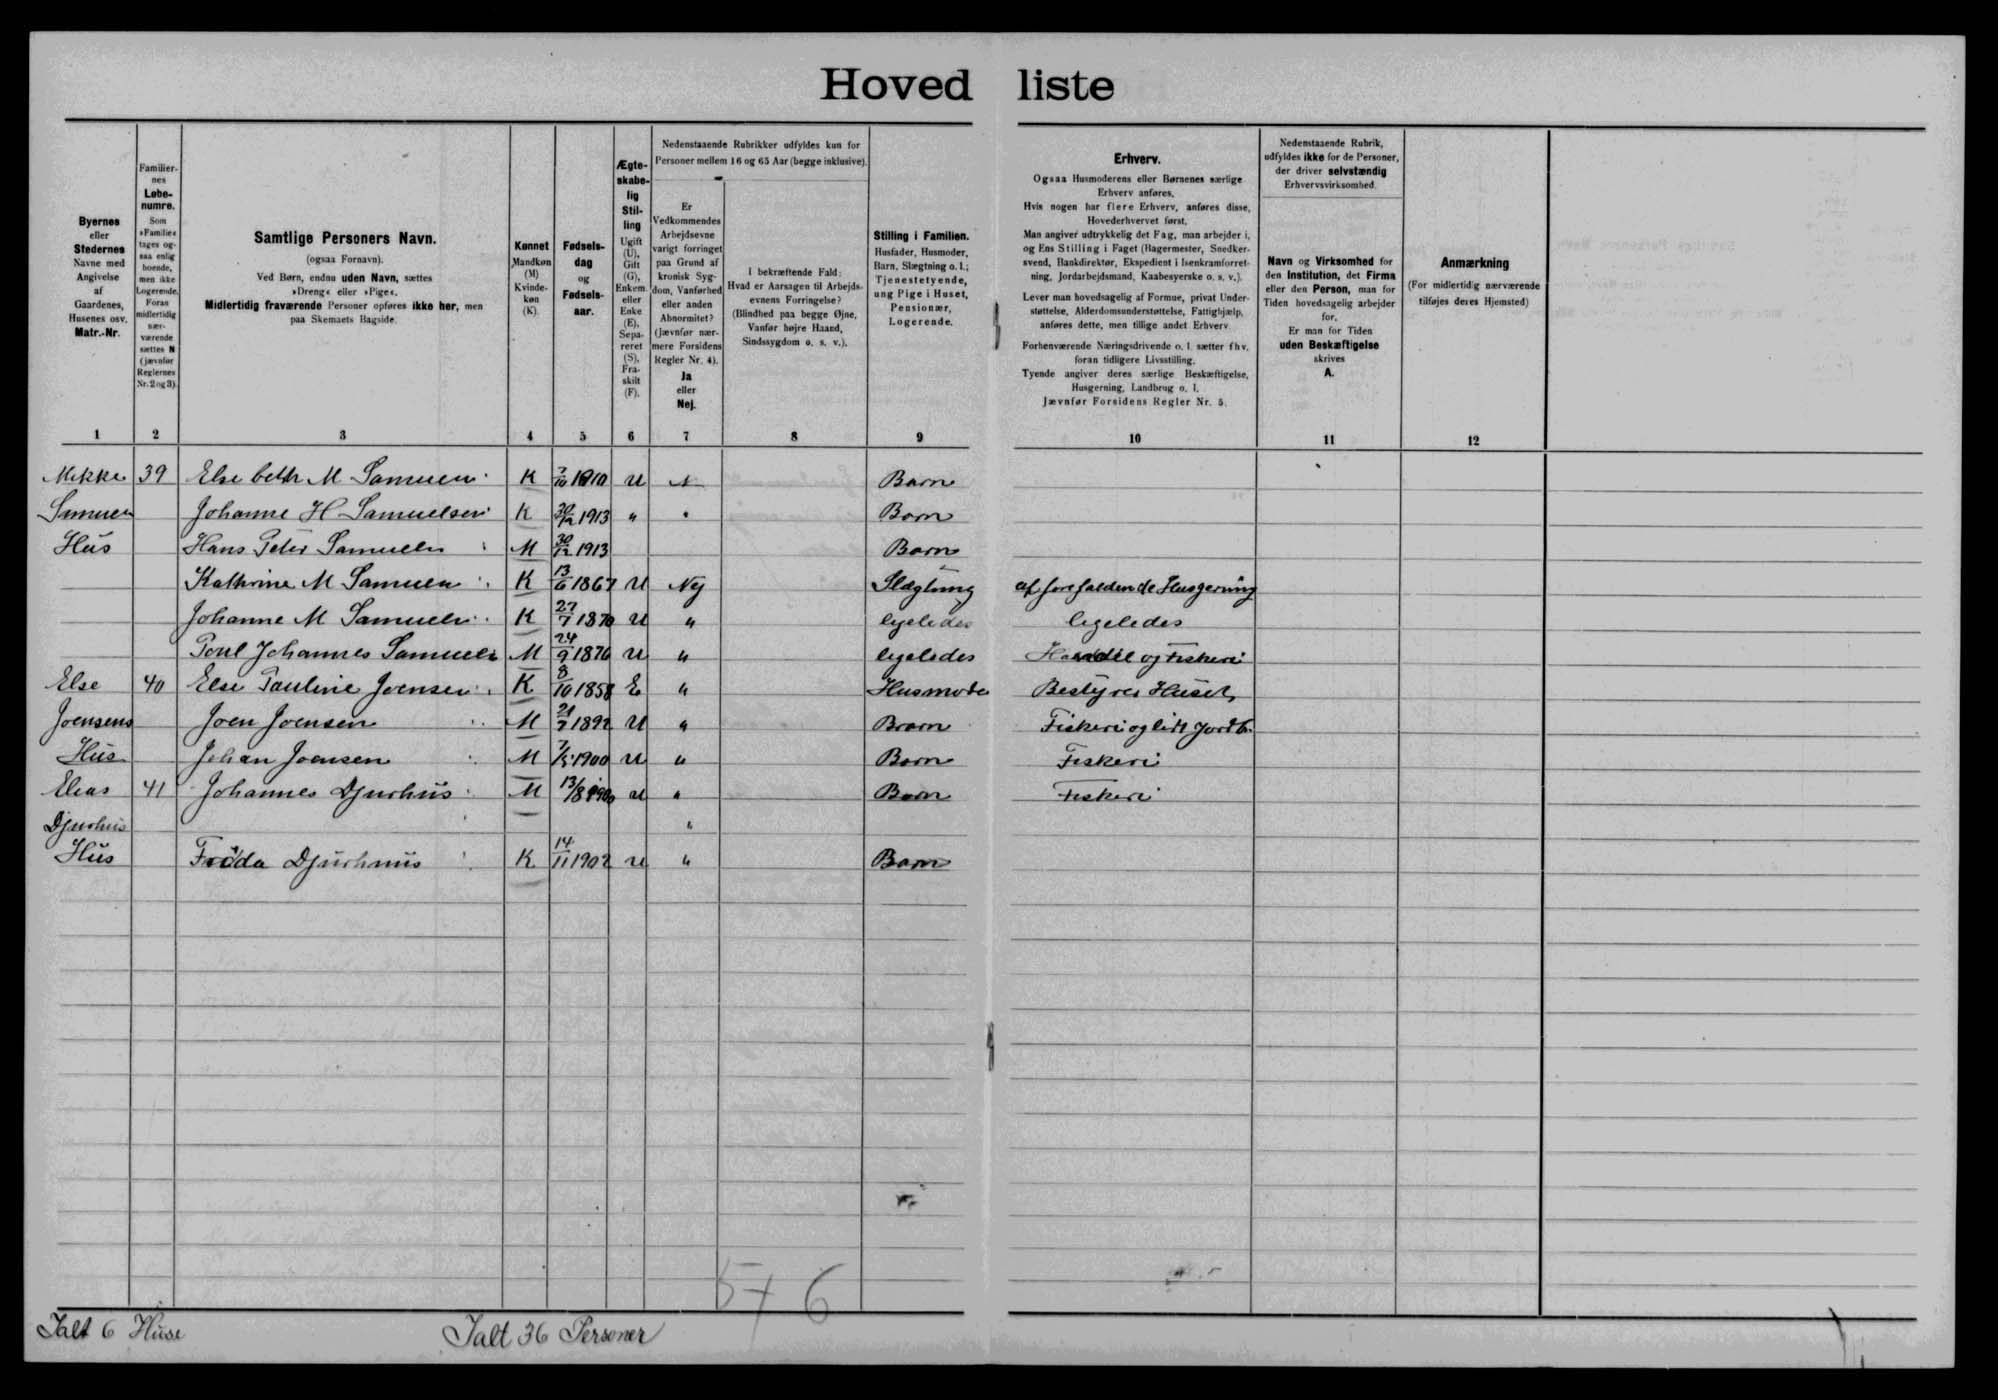 Hovedliste
Byernes
eller
Stedernes
Navne med
Angivelse
af
Gaardenes,
Husenes osv.
Matr.-Nr.
Familier-
nes
Løbe-
numre.
Som
»Familie«
tages og-
saa enlig
boende,
men ikke
Logerende.
Foran
midlertidig
nær-
værende
sættes N
(jævnfør
Reglernes
Nr. 2 og 3).
Samtlige Personers Navn.
(ogsaa Fornavn).
Ved Børn, endnu uden Navn, sættes
»Dreng« eller »Pige«.
Midlertidig fraværende Personer opføres ikke her, men
paa Skemaets Bagside.
Kønnet
Mandkøn
(M)
Kvinde-
køn
(K).
Fødsels-
dag
og
Fødsels-
aar.
Ægte-
skabe-
lig
Stil-
ling
Ugift
(U),
Gift
(G),
Enkem.
eller
Enke
(E),
Sepa-
reret
(S),
Fra-
skilt
(F).
Nedenstaaende Rubrikker udfyldes kun for
Personer mellem 16 og 65 Aar (begge inklusive).
Er
Vedkommendes
Arbejdsevne
varigt forringet
paa Grund af
kronisk Syg-
dom, Vanførhed
eller anden
Abnormitet?
(Jævnfør nær-
mere Forsidens
Regler Nr. 4).
Ja
eller
Nej.
I bekræftende Fald:
Hvad er Aarsagen til Arbejds-
evnens Forringelse?
(Blindhed paa begge Øjne,
Vanfør højre Haand,
Sindssygdom o. s. v.).
Stilling i Familien.
Husfader, Husmoder,
Barn, Slægtning o. l.;
Tjenestetyende,
ung Pige i Huset,
Pensionær,
Logerende.
Erhverv.
Ogsaa Husmoderens eller Børnenes særlige
Erhverv anføres.
Hvis nogen har flere Erhverv, anføres disse,
Hovederhvervet først.
Man angiver udtrykkelig det Fag, man arbejder i,
og Ens Stilling i Faget (Bagermester, Snedker-
svend, Bankdirektør, Ekspedient i Isenkramforret-
ning, Jordarbejdsmand, Kaabesyerske o. s. v.).
Lever man hovedsagelig af Formue, privat Under-
støttelse, Alderdomsunderstøttelse, Fattighjælp,
anføres dette, men tillige andet Erhverv
Forhenværende Næringsdrivende o. l. sætter fhv.
foran tidligere Livsstilling.
Tyende angiver deres særlige Beskæftigelse,
Husgerning, Landbrug o. l.
Jævnfør Forsidens Regler Nr. 5.
Nedenstaaende Rubrik,
udfyldes ikke for de Personer,
der driver selvstændig
Erhvervsvirksomhed.
Navn og Virksomhed for
den Institution, det Firma
eller den Person, man for
Tiden hovedsagelig arbejder
for.
Er man for Tiden
uden Beskæftigelse
skrives
A.
Anmærkning
(For midlertidig nærværende
tilføjes deres Hjemsted)
1 2 3 4 5 6 7 8 9 10 11 12
Mikke 39 Elsebeth M Samuels K 7/10 1910 U Barn
Samuels Johanne H Samuelsen K 30/12 1913 " " Barn
Hus Hans Peter Samuels M 30/12 1913 Barn
Kathrine M Samuels K 13/6 1867 U Nej Slægtning af forefaldende Husgerning
Johanne M Samuels K 27/7 1870 U " ligeledes ligeledes
Poul Johannes Samuels M 24/9 1876 U " ligeledes Handel og Fiskeri
Else 40 Else Pauline Joensen K 8/10 1858 E " Husmoder Bestyrer Huset
Joensens Joen Joensen M 21/7 1892 U " Barn Fiskeri og lidt Jordb.
Hus Johan Joensen M 7/5 1900 U " Barn Fiskeri
Elias 41 Johannes Djurhus M 13/8 1900 U " Barn Fiskeri
Djurhus "
Hus Frida Djurhuus K 14/11 1902 U " Barn
5 + 6
Ialt 6 Huse Ialt 36 Personer